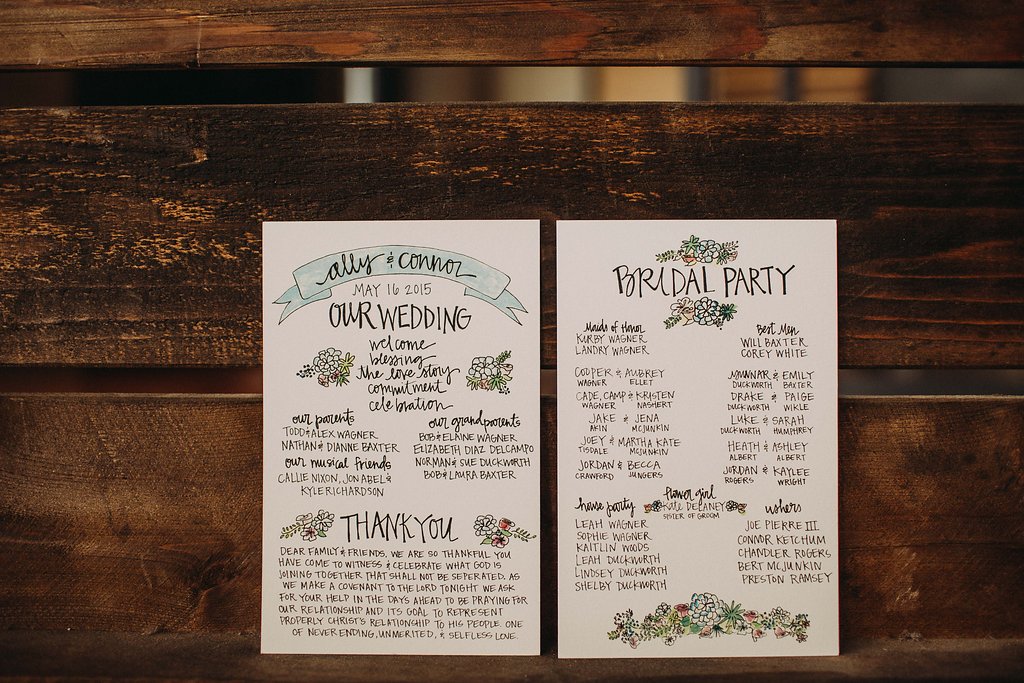 ally & connor
MAY 16 2015
OUR WEDDING
welcome
blessing
the love story
commitment
celebration
our parents
TODD & ALEX WAGNER
NATHAN & DIANNE BAXTER
our musical friends
CALLIE NIXON, JON ABEL &
KYLE RICHARDSON
our grandparents
BOB & ELAINE WAGNER
ELIZABETH DIAZ DELCAMPO
NORMAN & SUE DUCKWORTH
BOB & LAURA BAXTER
THANK YOU
DEAR FAMILY & FRIENDS, WE ARE SO THANKFUL YOU
HAVE COME TO WITNESS & CELEBRATE WHAT GOD IS
JOINING TOGETHER THAT SHALL NOT BE SEPERATED. AS
WE MAKE A COVENANT TO THE LORD TONIGHT WE ASK
FOR YOUR HELP IN THE DAYS AHEAD TO BE PRAYING FOR
OUR RELATIONSHIP AND ITS GOAL TO REPRESENT
PROPERLY CHRIST'S RELATIONSHIP TO HIS PEOPLE. ONE
OF NEVER ENDING, UNMERITED, & SELFLESS LOVE.
BRIDAL PARTY
Maids of Honor
KIRBY WAGNER
LANDRY WAGNER
COOPER & AUBREY
WAGNER ELLET
CADE, CAMP & KRISTEN
WAGNER NASHERT
JAKE & JENA
AKIN MCJUNKIN
JOEY & MARTHA KATE
TISDALE MCJUNKIN
JORDAN & BECCA
CRAWFORD JUNGERS
Best Men
WILL BAXTER
COREY WHITE
& EMILY
DUCKWORTH BAXTER
DRAKE & PAIGE
DUCKWORTH WIKLE
LUKE & SARAH
DUCKWORTH HUMPHREY
HEATH & ASHLEY
ALBERT ALBERT
JORDAN & KAYLEE
ROGERS WRIGHT
flower girl
KATE DELANEY
SISTER OF GROOM
house party
LEAH WAGNER
SOPHIE WAGNER
KAITLIN WOODS
LEAH DUCKWORTH
LINDSEY DUCKWORTH
SHELBY DUCKWORTH
ushers
JOE PIERRE III
CONNOR KETCHUM
CHANDLER ROGERS
BERT MCJUNKIN
PRESTON RAMSEY